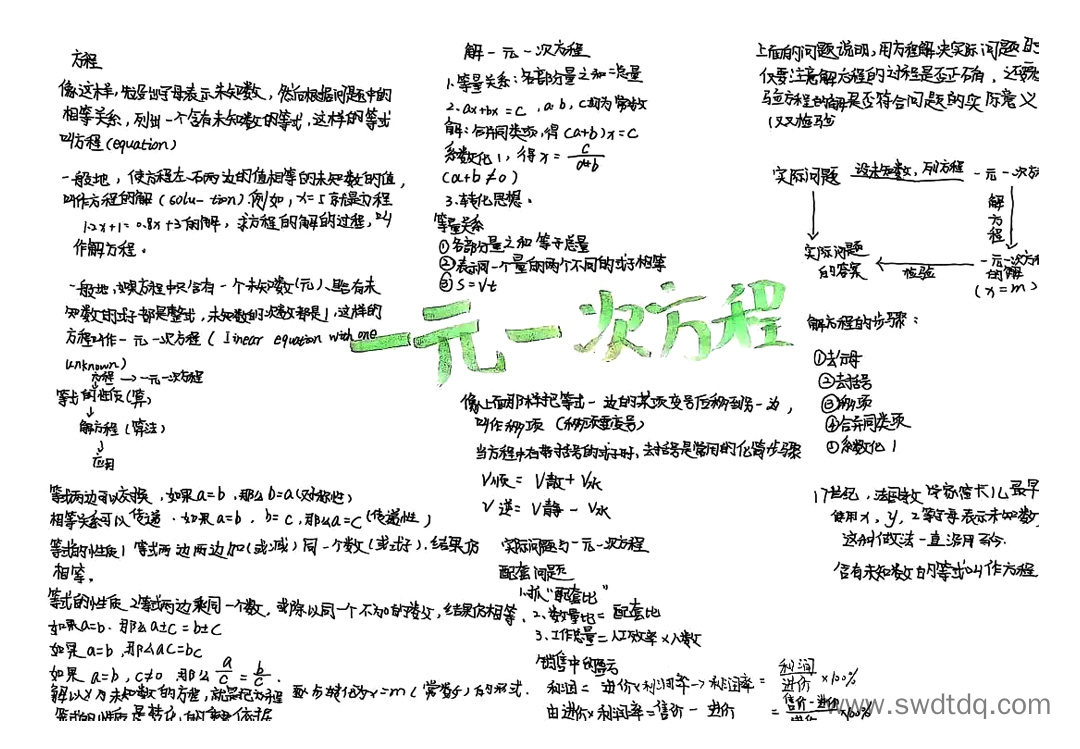 方程
像这样,先设出字母表示未知数,然后根据问题中的
相等关系,列出一个含有未知数的等式,这样的等式
叫方程(equation)
一般地,使方程左、右两边的值相等的未知数的值,
叫作方程的解(solu-tion).例如,x=5就是方程
1.2x+1=0.8x+3的解,求方程的解的过程,叫
作解方程。
一般地,如果方程中只含有一个未知数(元)、且含有未
知数的式子都是整式,未知数的次数都是1,这样的
方程叫作一元一次方程(linear equation with one
unknown)
方程→一元一次方程
等式的性质(算)
↓
解方程(算法)
↓
应用
等式两边可以交换,如果a=b,那么b=a(对称性)
相等关系可以传递.如果a=b,b=c,那么a=c(传递性)
等式的性质1 等式两边两边加(或减)同一个数(或式子),结果仍
相等。
等式的性质2等式两边乘同一个数,或除以同一个不为0的数,结果仍相等.
如果a=b.那么a±c=b±c
如果a=b,那么ac=bc
如果a=b,c≠0,那么a/c=b/c.
解以x为未知数的方程,就是把方程逐步转化为x=m(常数)的形式.
等式的性质是转化的重要依据
解一元一次方程
1.等量关系:各部分量之和=总量
2.ax+bx=c,a,b,c均为常数
解:合并同类项,得(a+b)x=c
系数化1,得x=c/a+b
(a+b≠0)
3.转化思想。
等量关系
①各部分量之和等于总量
②表示同一个量的两个不同的式子相等
③S=Vt
一元一次方程
像上面那样把等式一边的某项变号后移到另一边,
叫作移项(移项要变号)
当方程中有带括号的式子时,去括号是常用的化简步骤
V顺=V静+V水
V逆=V静-V水
实际问题与一元一次方程
配套问题
1.抓“配套比”
2.数量比=配套比
3.工作总量=人工效率×人数
销售中的盈亏
利润=进价×利润率→利润率=利润/进价×100%
由进价×利润率=售价-进价=售价-进价/进价×100%
上面的问题说明,用方程解决实际问题时
仅要注意解方程的过程是否正确,还要
验方程的解是否符合问题的实际意义
以双检验
实际问题 设未知数,列方程 一元一次方
解方程
实际问题
的答案 检验 一元一次方
的解
(x=m)
解方程的步骤:
①去分母
②去括号
③移项
④合并同类项
⑤系数化1
17世纪,法国数学家笛卡儿最早
使用x,y,z等字母表示未知数
这种做法一直沿用至今.
含有未知数的等式叫作方程
www.swdtdq.com